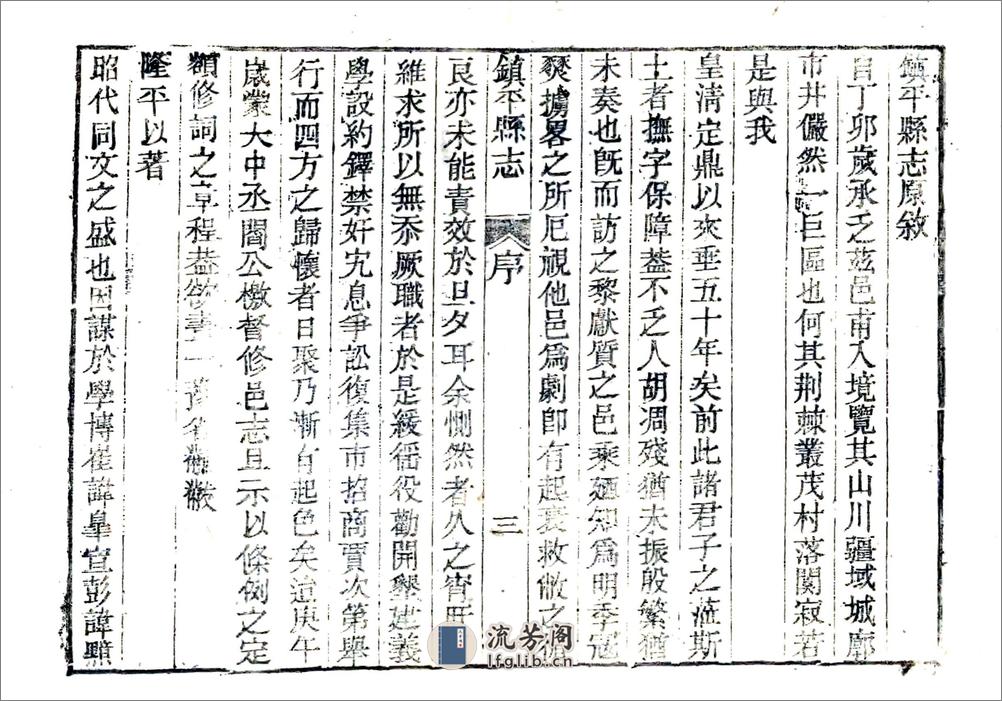 鎮平縣志原敘
自丁卯歲承乏茲邑甫入境覽其山川疆域城廓
市井儼然一巨區也何其荆棘叢茂村落闃寂若
是與我
皇清定鼎以來垂五十年矣前此諸君子之蒞斯
土者撫字保障葢不乏人胡凋殘猶未振殷繁猶
未奏也旣而訪之黎獻質之邑乘廼知爲明季寇
燹擄畧之所厄視他邑爲劇卽有起衰救敝之
良亦未能責效於旦夕耳余惻然者久之宵旰
維求所以無忝厥職者於是緩徭役勸開墾建義
學設約鐸禁奸宄息爭訟復集市招商賈次第舉
行而四方之歸懷者日聚乃漸有起色矣迨庚午
歲蒙大中丞閻公檄督修邑志且示以條例之定
額修詞之章程葢欲
隆平以著
昭代同文之盛也因謀於學博崔諱皐宣彭諱顯
鎮平縣志
序
三
流芳阁
lfglib.cn